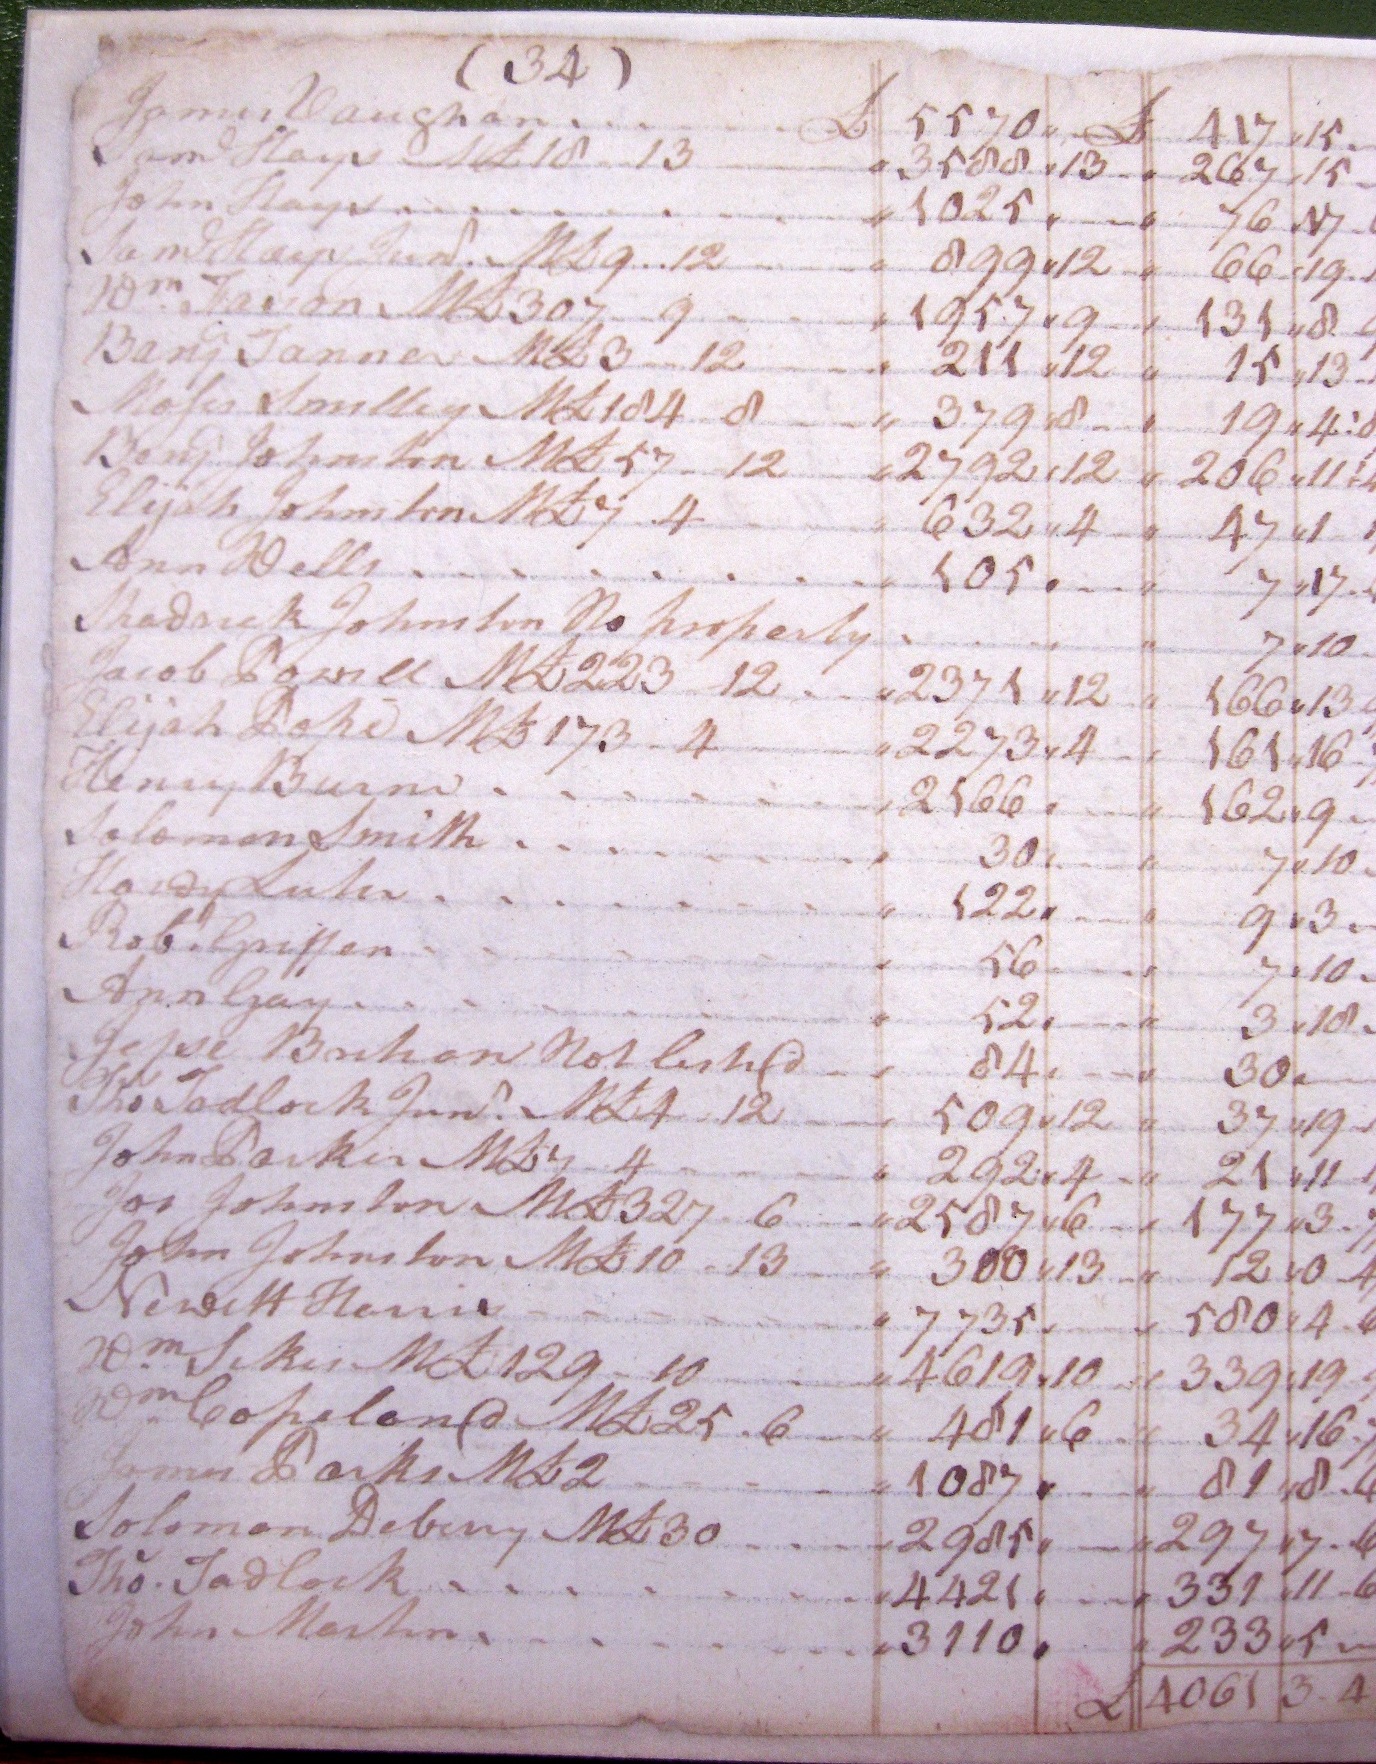 (34)
James Vaughan £ 5570 " £ 417 " 15
Sam^l Hays M£18 - 13 " 3588 " 13 " 267 " 15
John Hays " 1025 " " 76 " 17
Sam^l Hays Jun^r. M£9 - 12 " 899 " 12 " 66 " 19
W^m. M£307 - 9 " 1957 " 9 " 131 " 8
Benj Tanner M£3 - 12 " 211 " 12 " 15 " 13
Moses Smelley M£184 - 8 " 379 " 8 " 19 " 4
Benj Johnston M£57 - 12 " 2792 " 12 " 206 " 11
Elijah Johnston M£7 - 4 " 632 " 4 " 47 " 1
Ann Wells " 105 " " 7 " 17
Shadrick Johnston No property " 7 " 10
Jacob Powell M£223 - 12 " 2371 " 12 " 166 " 13
Elijah Pope M£173 - 4 " 2273 " 4 " 161 " 16
Henry Burn " 2166 " " 162 " 9
Solomon Smith " 30 " " 7 " 10
Hardy " 122 " " 9 " 3
Rob^t. Griffen " 56 " 7 " 10
Ann Gay " 52 " " 3 " 18
Jesse Not listed " 84 " " 30 "
Tho^s Tadlock Jun^r. M£4 - 12 " 509 " 12 " 37 " 19
John Parker M£7 - 4 " 292 " 4 " 21 " 11
Jos Johnston M£327 - 6 " 2587 " 6 " 177 " 3
John Johnston M£10 - 13 " 300 " 13 " 12 " 0 4
Newitt Harris " 7735 " " 580 " 4 - 6
W^m Sikes M£129 - 10 " 4619 " 10 " 339 " 19
W^m. Copeland M£25 - 6 " 481 " 6 " 34 " 16
James Parks M£2 " 1087 " " 81 " 8 - 6
Solomon Deberry M£30 " 2985 " " 297 " 7 - 6
Tho^s. Tadlock " 4421 " " 331 " 11 - 6
John Martin " 3110 " " 233 " 5
£ 4061 3 - 4